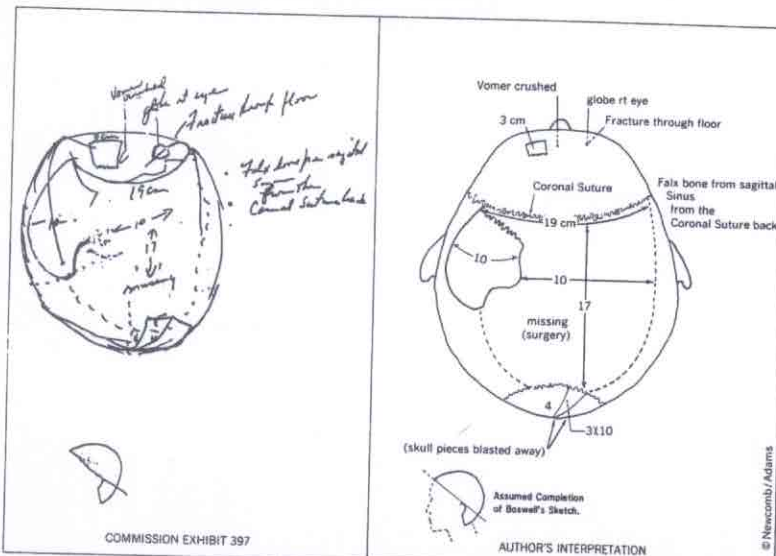 Vomer
crushed
globe rt eye
Fracture through floor
3 cm
19 cm
Falx
from the
Coronal Suture back
10
17
COMMISSION EXHIBIT 397
Vomer crushed
globe rt eye
3 cm
Fracture through floor
Coronal Suture
Falx bone from sagittal
Sinus
from the
Coronal Suture back
19 cm
10
10
17
missing
(surgery)
4
(skull pieces blasted away)
Assumed Completion
of Boswell's Sketch.
AUTHOR'S INTERPRETATION
© Newcomb/Adams